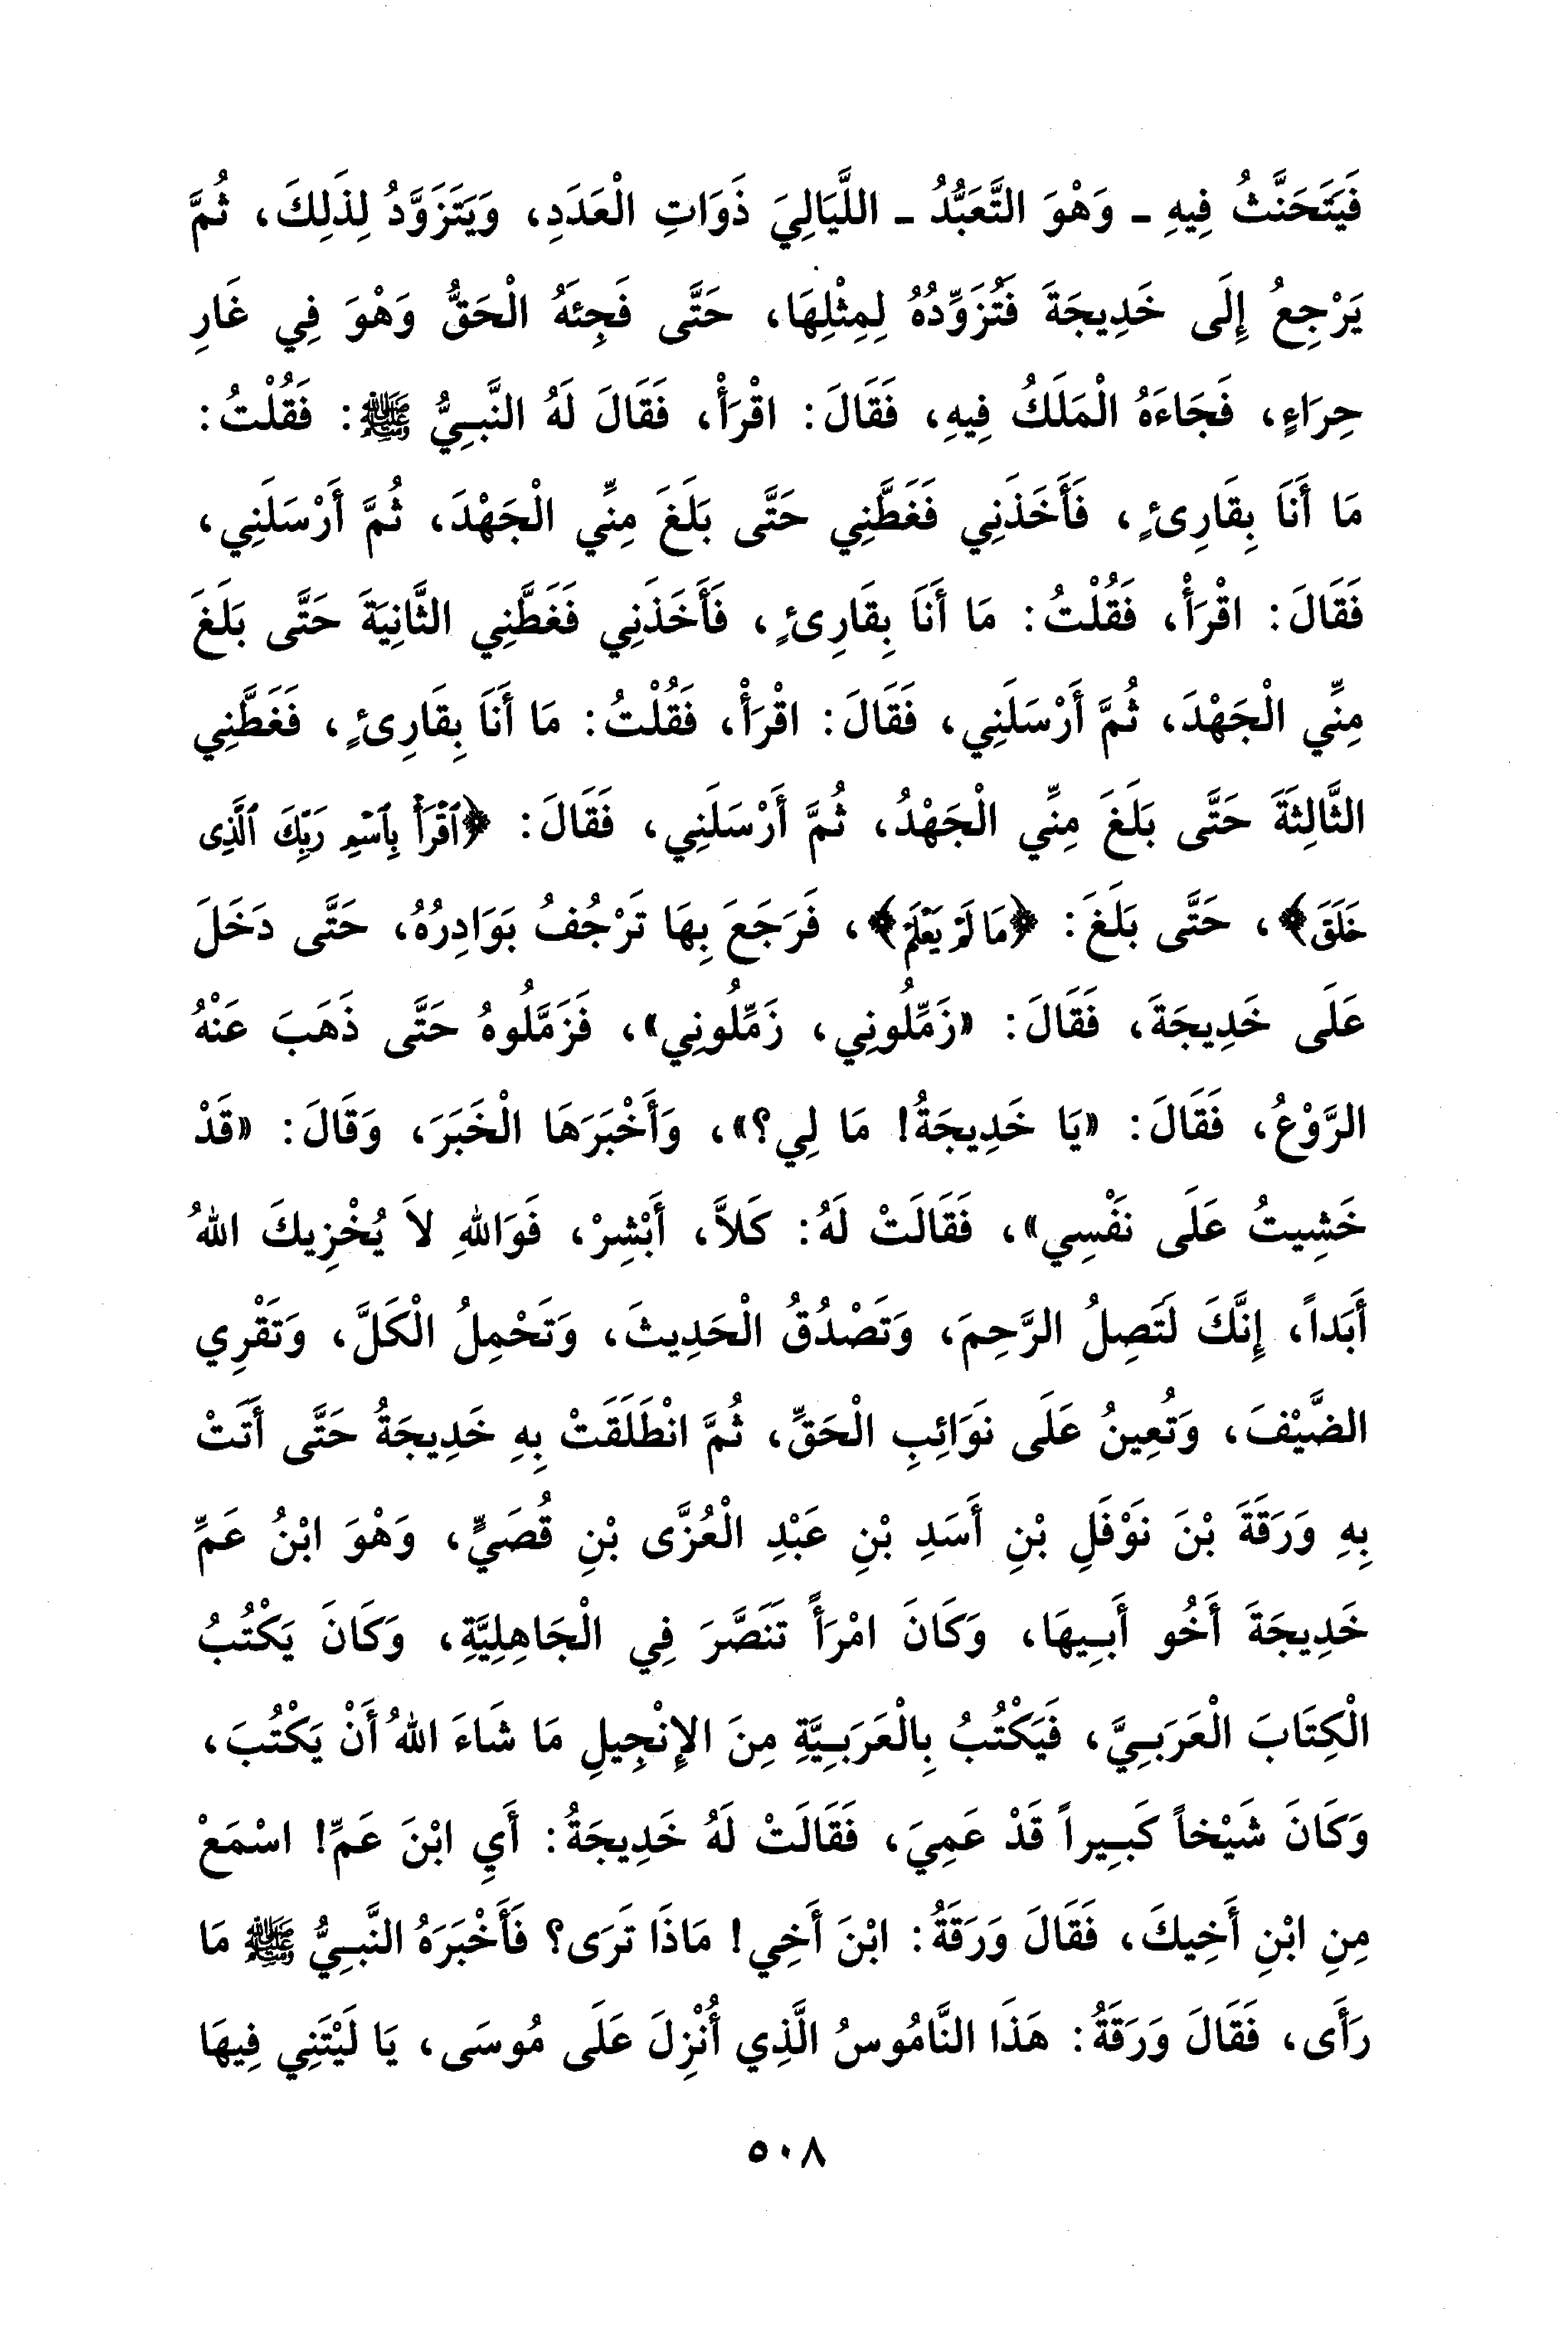 فَيَتَحَنَّثُ فِيهِ ـ وَهْوَ التَّعَبُّدُ ـ اللَّيَالِيَ ذَوَاتِ الْعَدَدِ، وَيَتَزَوَّدُ لِذَلِكَ، ثُمَّ
يَرْجِعُ إِلَى خَدِيجَةَ فَتُزَوِّدُهُ لِمِثْلِهَا، حَتَّى فَجِئَهُ الْحَقُّ وَهْوَ فِي غَارِ
حِرَاءٍ، فَجَاءَهُ الْمَلَكُ فِيهِ، فَقَالَ: اقْرَأْ، فَقَالَ لَهُ النَّبِيُّ ﷺ: فَقُلْتُ:
مَا أَنَا بِقَارِئٍ، فَأَخَذَنِي فَغَطَّنِي حَتَّى بَلَغَ مِنِّي الْجَهْدَ، ثُمَّ أَرْسَلَنِي،
فَقَالَ: اقْرَأْ، فَقُلْتُ: مَا أَنَا بِقَارِئٍ، فَأَخَذَنِي فَغَطَّنِي الثَّانِيَةَ حَتَّى بَلَغَ
مِنِّي الْجَهْدَ، ثُمَّ أَرْسَلَنِي، فَقَالَ: اقْرَأْ، فَقُلْتُ: مَا أَنَا بِقَارِئٍ، فَغَطَّنِي
الثَّالِثَةَ حَتَّى بَلَغَ مِنِّي الْجَهْدُ، ثُمَّ أَرْسَلَنِي، فَقَالَ: ﴿ٱقْرَأْ بِٱسْمِ رَبِّكَ ٱلَّذِى
خَلَقَ﴾، حَتَّى بَلَغَ: ﴿مَا لَمْ يَعْلَمْ﴾، فَرَجَعَ بِهَا تَرْجُفُ بَوَادِرُهُ، حَتَّى دَخَلَ
عَلَى خَدِيجَةَ، فَقَالَ: «زَمِّلُونِي، زَمِّلُونِي»، فَزَمَّلُوهُ حَتَّى ذَهَبَ عَنْهُ
الرَّوْعُ، فَقَالَ: «يَا خَدِيجَةُ! مَا لِي؟»، وَأَخْبَرَهَا الْخَبَرَ، وَقَالَ: «قَدْ
خَشِيتُ عَلَى نَفْسِي»، فَقَالَتْ لَهُ: كَلاَّ، أَبْشِرْ، فَوَاللهِ لاَ يُخْزِيكَ اللهُ
أَبَداً، إِنَّكَ لَتَصِلُ الرَّحِمَ، وَتَصْدُقُ الْحَدِيثَ، وَتَحْمِلُ الْكَلَّ، وَتَقْرِي
الضَّيْفَ، وَتُعِينُ عَلَى نَوَائِبِ الْحَقِّ، ثُمَّ انْطَلَقَتْ بِهِ خَدِيجَةُ حَتَّى أَتَتْ
بِهِ وَرَقَةَ بْنَ نَوْفَلِ بْنِ أَسَدِ بْنِ عَبْدِ الْعُزَّى بْنِ قُصَيٍّ، وَهْوَ ابْنُ عَمِّ
خَدِيجَةَ أَخُو أَبِيهَا، وَكَانَ امْرَأً تَنَصَّرَ فِي الْجَاهِلِيَّةِ، وَكَانَ يَكْتُبُ
الْكِتَابَ الْعَرَبِيَّ، فَيَكْتُبُ بِالْعَرَبِيَّةِ مِنَ الإِنْجِيلِ مَا شَاءَ اللهُ أَنْ يَكْتُبَ،
وَكَانَ شَيْخاً كَبِيراً قَدْ عَمِيَ، فَقَالَتْ لَهُ خَدِيجَةُ: أَيِ ابْنَ عَمِّ! اسْمَعْ
مِنِ ابْنِ أَخِيكَ، فَقَالَ وَرَقَةُ: ابْنَ أَخِي! مَاذَا تَرَى؟ فَأَخْبَرَهُ النَّبِيُّ ﷺ مَا
رَأَى، فَقَالَ وَرَقَةُ: هَذَا النَّامُوسُ الَّذِي أُنْزِلَ عَلَى مُوسَى، يَا لَيْتَنِي فِيهَا
٥٠٨